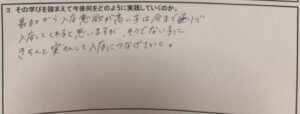 3. その学びを踏まえて今後何をどのように実践していくのか。
最初から入店意欲が高い子は今まで通りで
入店してくれると思いますが、そうでない子に
きちんと実せんして入店につなげていく。